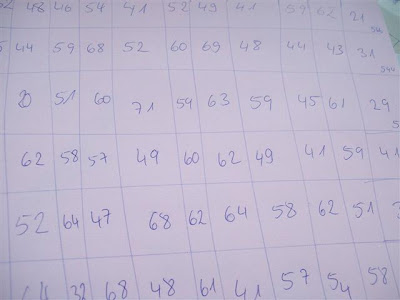 48 46 54 41 52 49 41 59 62 21
44 59 68 52 60 69 48 44 43 31
20 51 60 71 59 63 59 45 61 29
62 58 57 49 60 62 49 41 59 41
52 64 47 68 62 64 58 62 51
32 68 48 61 41 57 54 58